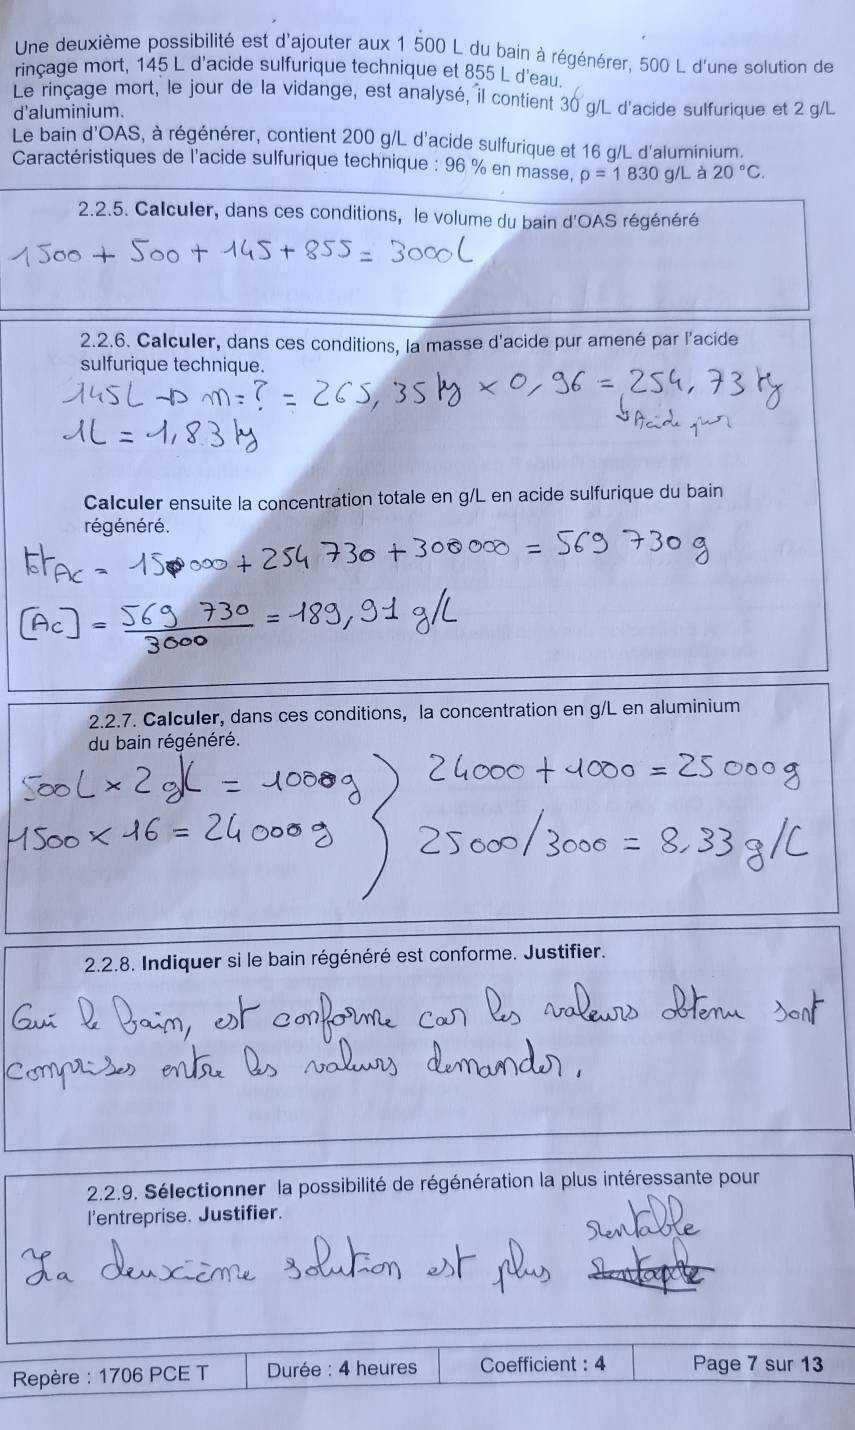 Une deuxième possibilité est d'ajouter aux 1 500 L du bain à régénérer, 500 L d'une solution de
rinçage mort, 145 L d'acide sulfurique technique et 855 L d'eau.
Le rinçage mort, le jour de la vidange, est analysé, il contient 30 g/L d'acide sulfurique et 2 g/L
d'aluminium.
Le bain d'OAS, à régénérer, contient 200 g/L d'acide sulfurique et 16 g/L d'aluminium.
Caractéristiques de l'acide sulfurique technique : 96 % en masse, ρ = 1 830 g/L à 20 °C.
2.2.5. Calculer, dans ces conditions, le volume du bain d'OAS régénéré
1500 + 500 + 145 + 855 = 3000L
2.2.6. Calculer, dans ces conditions, la masse d'acide pur amené par l'acide
sulfurique technique.
145L → m = ? = 265,35 kg × 0,96 = 254,73 kg
↳ Acide pur
1L = 1,83 kg
Calculer ensuite la concentration totale en g/L en acide sulfurique du bain
régénéré.
tot Ac = 15000 + 254 730 + 300000 = 569 730 g
[Ac] = 569 730 / 3000 = 189,91 g/L
2.2.7. Calculer, dans ces conditions, la concentration en g/L en aluminium
du bain régénéré.
500L × 2 g/L = 1000g } 24000 + 1000 = 25000g
1500 × 16 = 24000g } 25000/3000 = 8,33 g/L
2.2.8. Indiquer si le bain régénéré est conforme. Justifier.
Oui le bain, est conforme car les valeurs obtenu sont
comprises entre les valeurs demander.
2.2.9. Sélectionner la possibilité de régénération la plus intéressante pour
l'entreprise. Justifier.
La deuxième solution est plus rentable
Repère : 1706 PCE T Durée : 4 heures Coefficient : 4 Page 7 sur 13